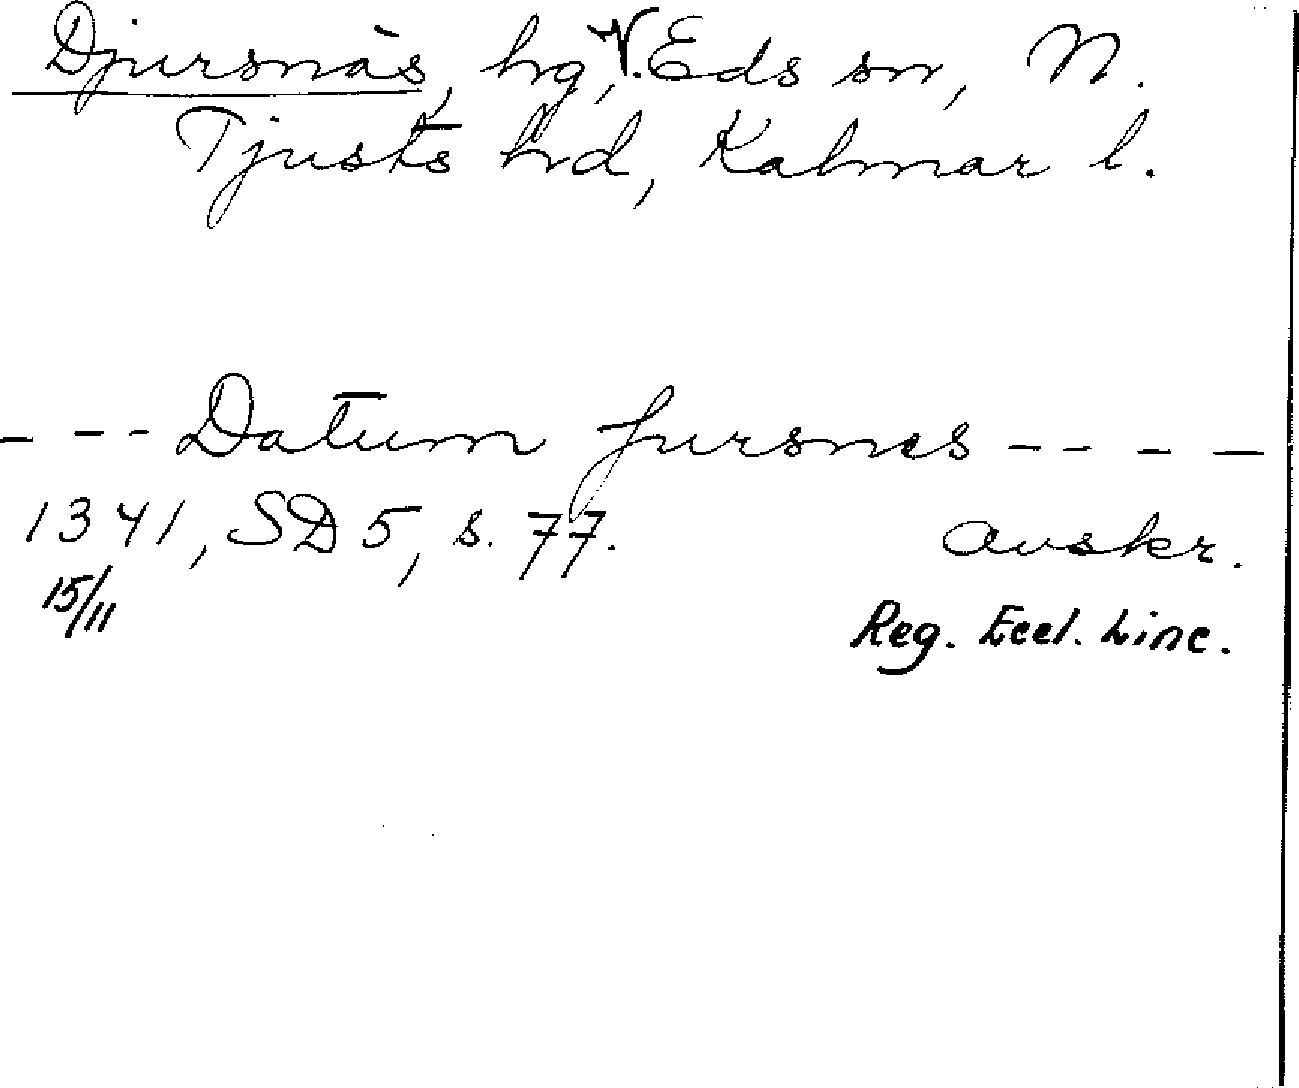 Djursnäs, hg, V. Eds sn, N.
Tjusts hd, Kalmar l.
- - - Datum jursnes - - - -
1341, SD 5, s. 77. avskr.
15/11 Reg. Eccl. Linc.